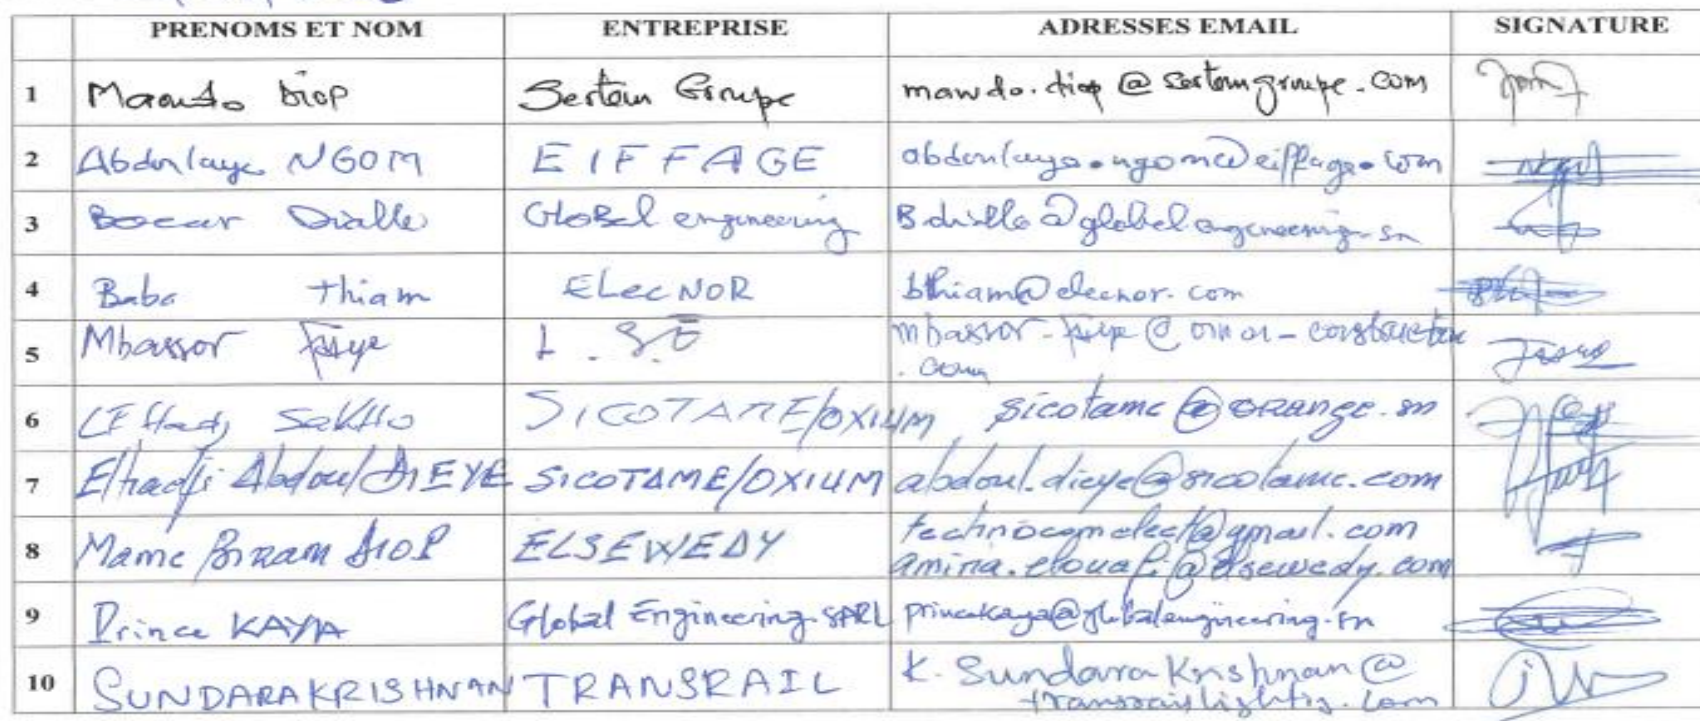 PRENOMS ET NOM ENTREPRISE ADRESSES EMAIL SIGNATURE
1 Mawdo Diop Sertem Groupe mawdo.diop@sertemgroupe.com
2 Abdoulaye NGOM EIFFAGE abdoulaye.ngom@eiffage.com
3 Bocar Diallo Global engineering B.diallo@globalengineering.sn
4 Baba thiam ELecNOR bthiam@elecnor.com
5 Mbassor Faye L.S.E mbassor-faye@-construction
.com
6 Sakho SICOTAME/OXIUM sicotame@ORANGE.sn
7 Elhadji Abdoul DIEYE SICOTAME/OXIUM abdoul.dieye@sicotame.com
8 Mame Biram DIOP ELSEWEDY technocomelect@gmail.com
amina.elouafi@elsewedy.com
9 Prince KAYA Global Engineering SARL princekaya@globalengineering.sn
10 SUNDARAKRISHNAN TRANSRAIL K.SundaraKrishnan@
transraillighting.com